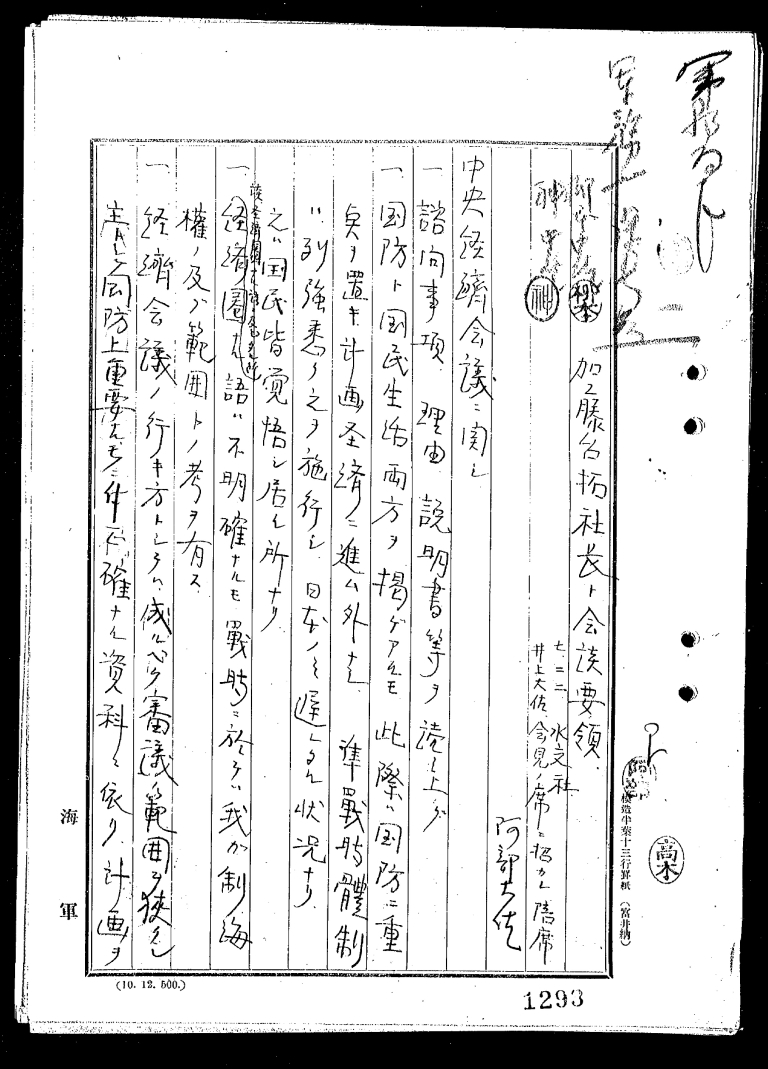 軍務
軍務一
神
加藤台拓社長ト会談要領
七、二二 水交社
井上大佐会見ノ席ニ招カレ陪席
阿部大佐
中央経濟会議ニ関シ
一 諮問事項、理由、説明書等ヲ読ミ上グ
一 国防ト国民生活両方ヲ掲ゲアルモ此際ハ国防ニ重
点ヲ置キ計画経済ニ進ム外ナシ 準戦時體制
ハ列強悉ク之ヲ施行シ 日本ノミ遅レタル状况ナリ
之ハ国民皆覚悟シ居ル所ナリ
一 経済圏ナル語ハ不明確ナルモ戰時ニ於テハ我ガ制海
權ノ及ブ範囲トノ考ヲ有ス
一 経濟会議ノ行キ方トシテハ成ルベク審議範囲ヲ狭クシ
主トシテ国防上重要ナルモノニ付 確ナル資料ニ依リ計画ヲ
海軍
高木
模造半葉十三行罫紙 (富井納)
(10. 12. 500.)
1293